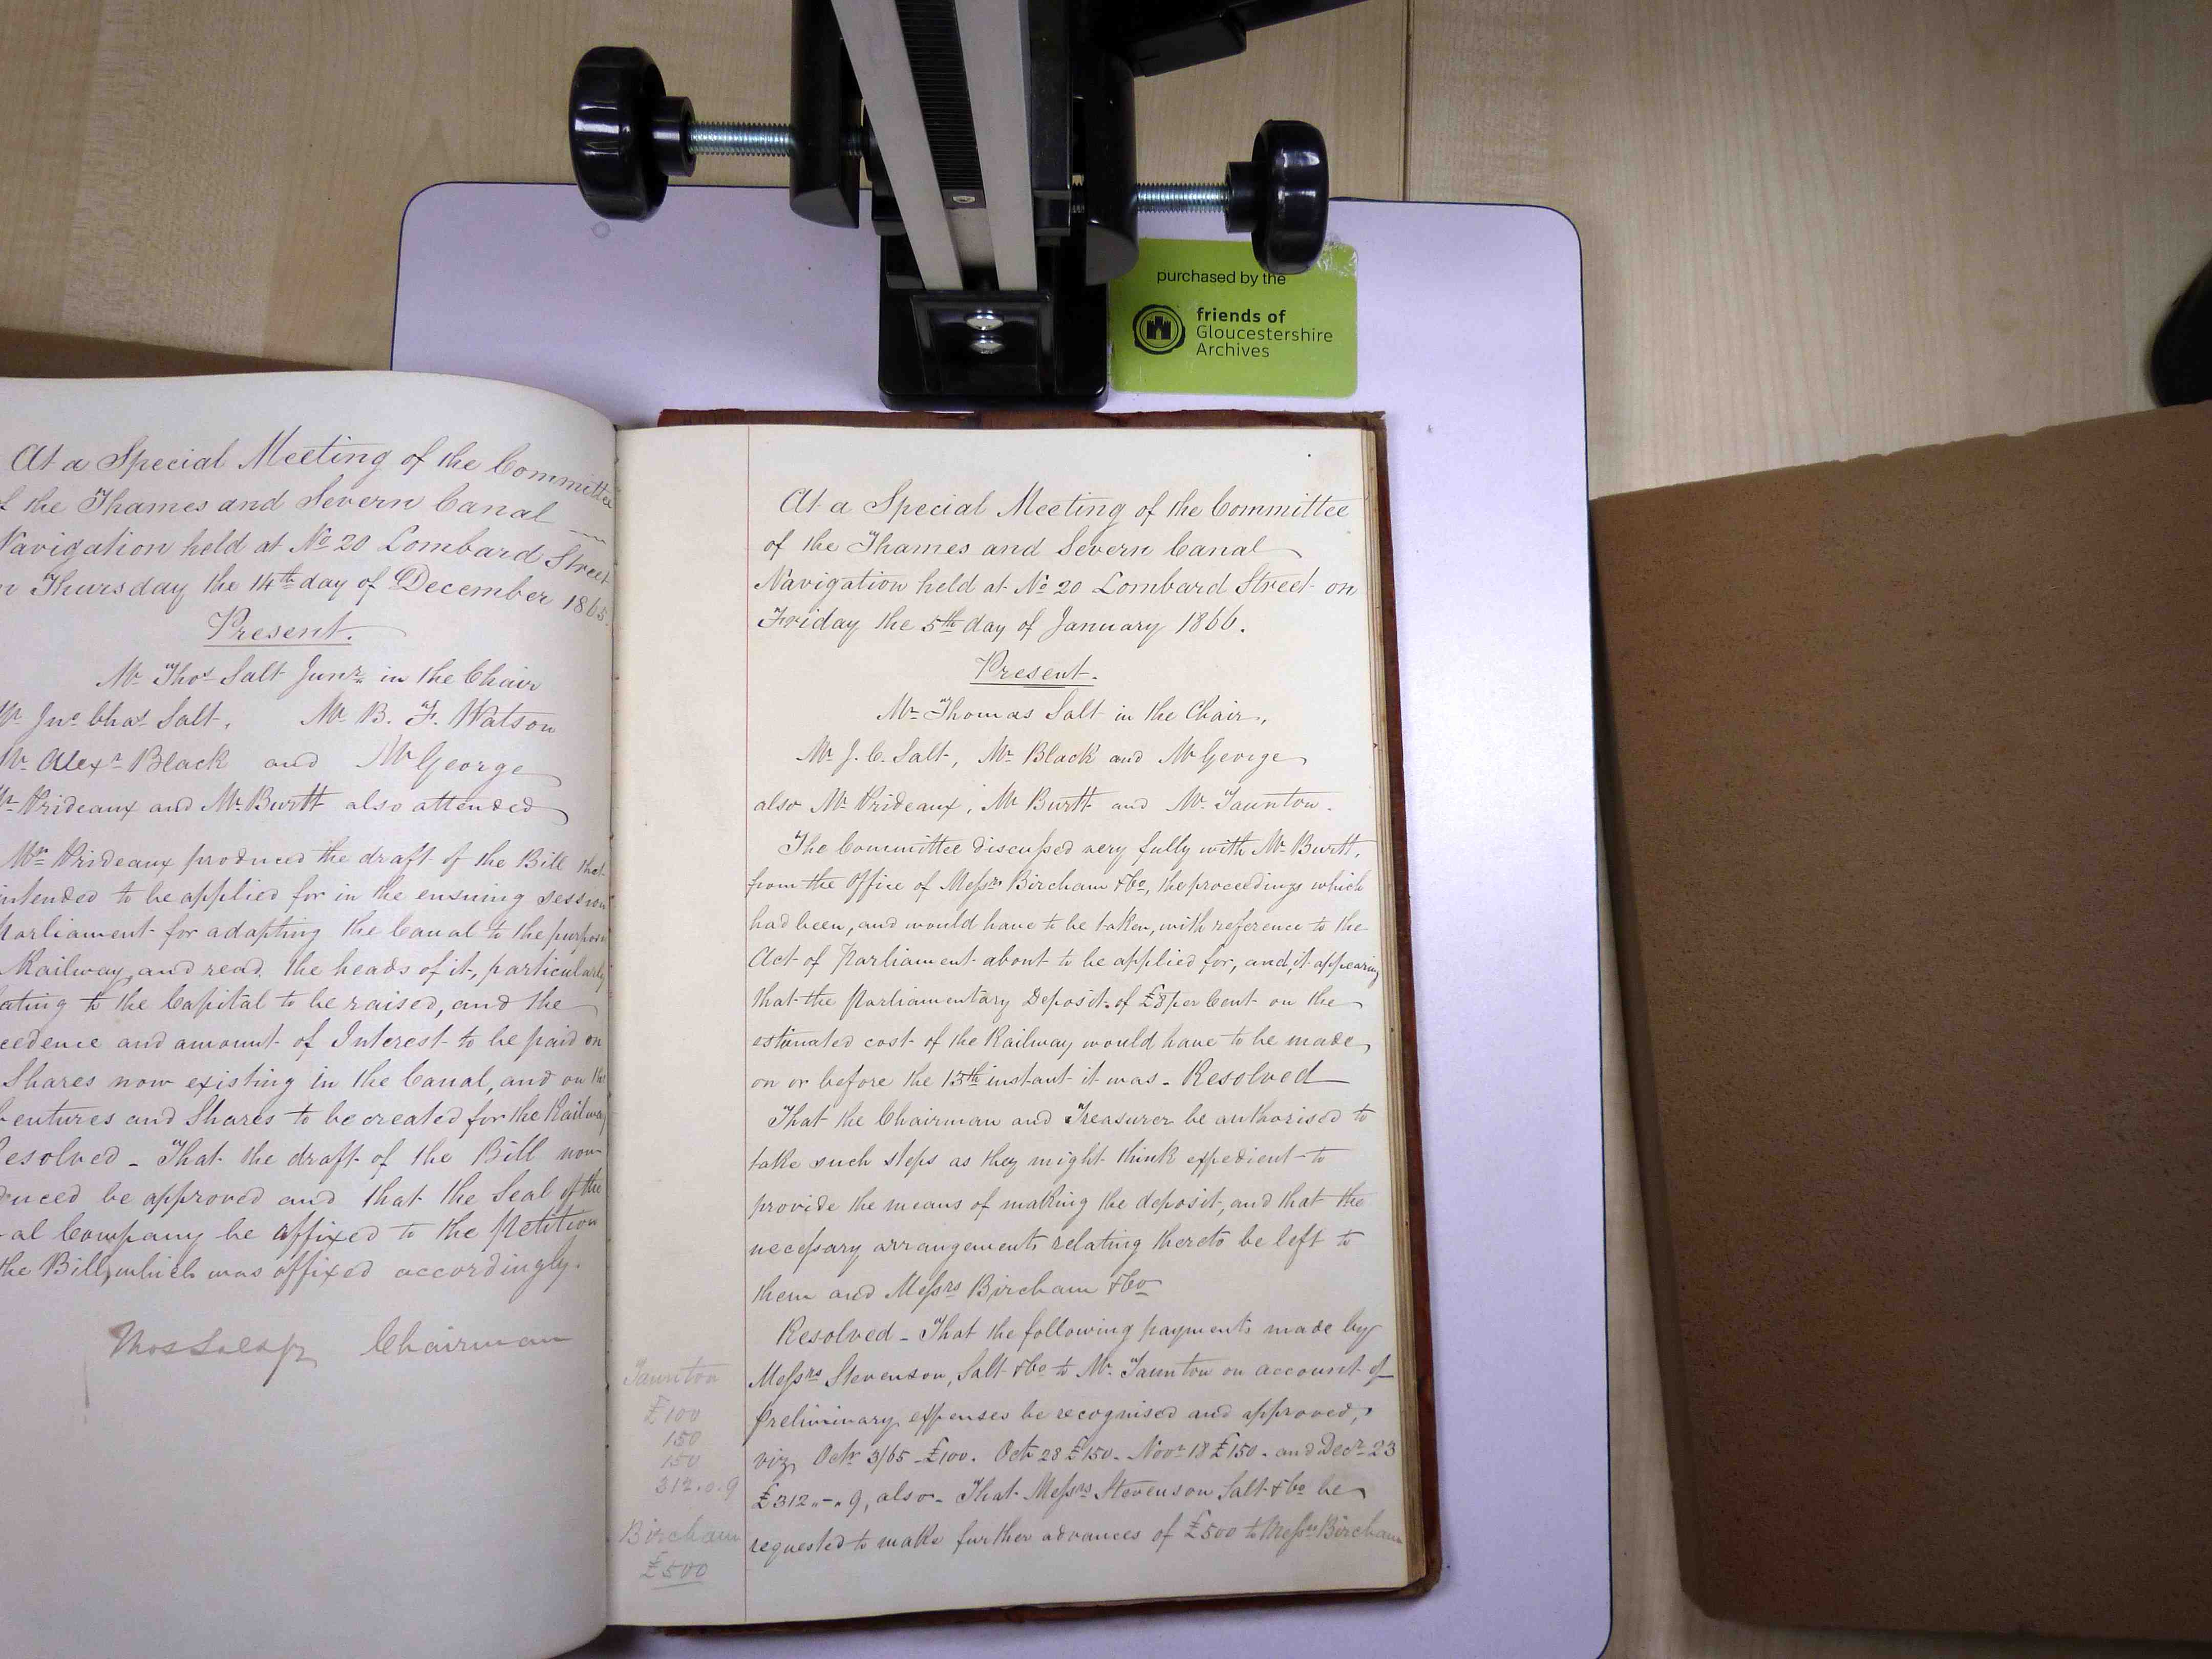 purchased by the
friends of
Gloucestershire
Archives
At a Special Meeting of the Committee
the Thames and Severn Canal
Navigation held at No 20 Lombard Street
Thursday the 14th day of December 1865.
Present.
Mr Thos Salt Junr in the Chair
Mr Jno Chas Salt, Mr B. F. Watson
Mr Alexr Black and Mr George
Mr Prideaux and Mr Burtt also attended
Mr Prideaux produced the draft of the Bill that
intended to be applied for in the ensuing session
Parliament for adapting the Canal to the purposes
Railway, and read the heads of it, particularly
ating to the Capital to be raised, and the
cedence and amount of Interest to be paid on
Shares now existing in the Canal, and on the
entures and Shares to be created for the Railway
esolved - That the draft of the Bill now
duced be approved and that the Seal of the
al Company be affixed to the Petition
the Bill, which was affixed accordingly.
Thos Salt Jr Chairman
At a Special Meeting of the Committee
of the Thames and Severn Canal
Navigation held at No 20 Lombard Street on
Friday the 5th day of January 1866.
Present.
Mr Thomas Salt in the Chair,
Mr J. C. Salt, Mr Black and Mr George
also Mr Prideaux, Mr Burtt and Mr Taunton.
The Committee discussed very fully with Mr Burtt,
from the Office of Messrs Bircham & Co, the proceedings which
had been, and would have to be taken, with reference to the
Act of Parliament about to be applied for, and, it appearing
that the Parliamentary Deposit of £8 per Cent on the
estimated cost of the Railway would have to be made
on or before the 15th instant it was - Resolved
That the Chairman and Treasurer be authorised to
take such steps as they might think expedient to
provide the means of making the deposit, and that the
necessary arrangements relating thereto be left to
them and Messrs Bircham & Co
Resolved - That the following payments made by
Messrs Stevenson, Salt & Co to Mr Taunton on account of
preliminary expenses be recognised and approved,
viz, Octr 3/65 - £100. Octr 28 £150. Novr 18 £150. and Decr 23
£312 „ - „ 9, also - That Messrs Stevenson Salt & Co be
requested to make further advances of £500 to Messrs Bircham
Taunton
£100
150
150
312.0.9
Bircham
£500